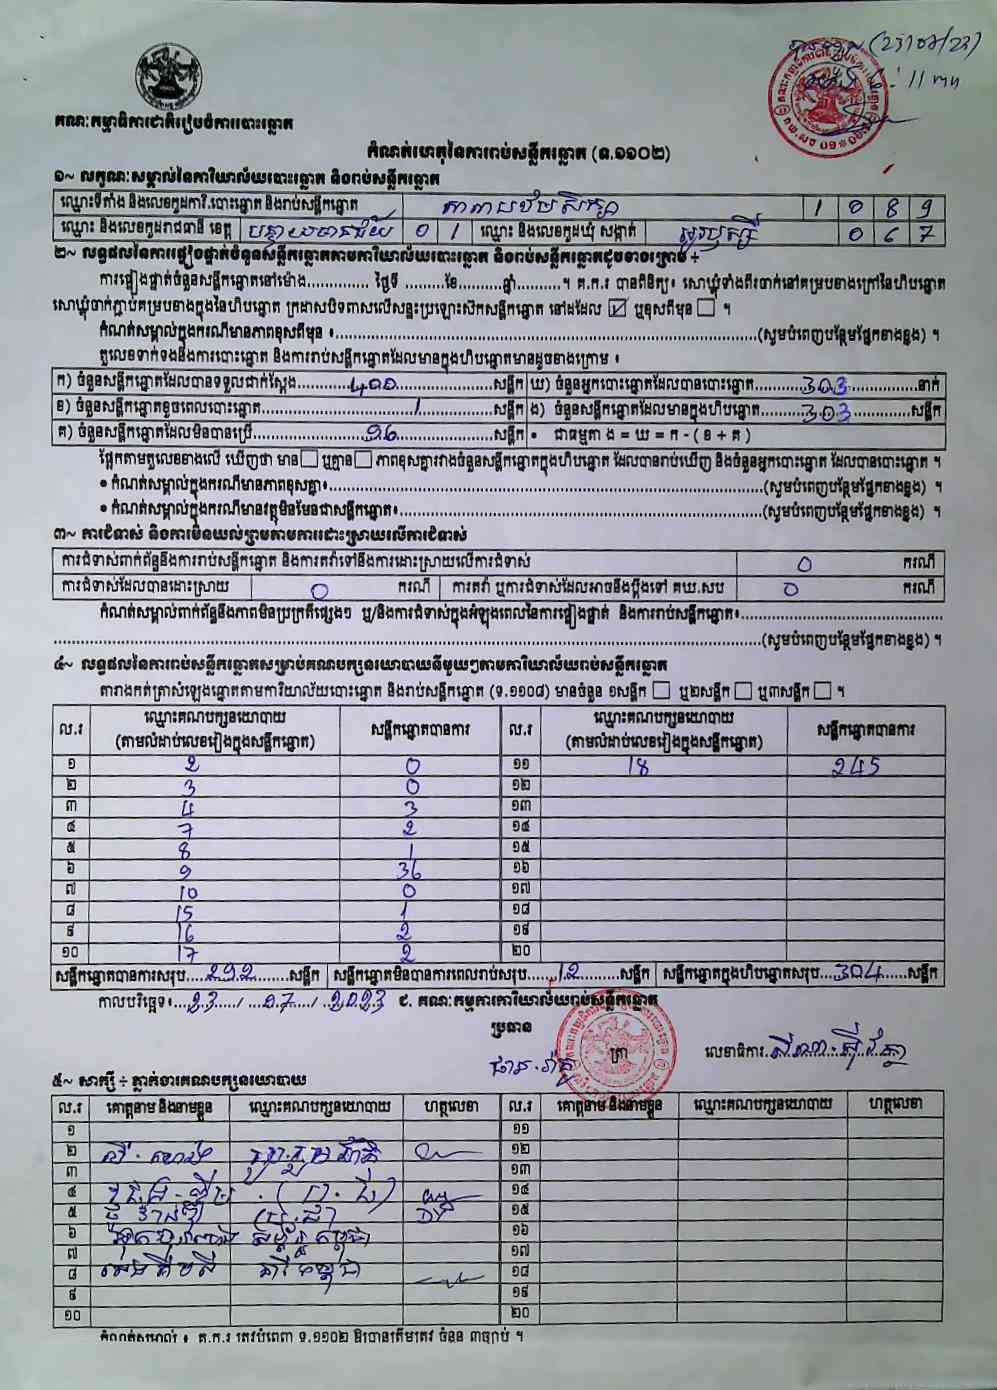 (23/07/23)
: 11 កញ
គណៈកម្មាធិការជាតិរៀបចំការបោះឆ្នោត
កំណត់ហេតុនៃការរាប់សន្លឹកឆ្នោត (ទ.១១០២)
១~ លក្ខណៈសម្គាល់នៃការិយាល័យបោះឆ្នោត និងរាប់សន្លឹកឆ្នោត
ឈ្មោះទីតាំង និងលេខកូដការិ.បោះឆ្នោត និងរាប់សន្លឹកឆ្នោត 1 0 8 9
ឈ្មោះ និងលេខកូដរាជធានី ខេត្ត បន្ទាយមានជ័យ 0 1 ឈ្មោះ និងលេខកូដឃុំ សង្កាត់ អូរឫស្សី 0 6 7
២~ លទ្ធផលនៃការផ្ទៀងផ្ទាត់ចំនួនសន្លឹកឆ្នោតតាមការិយាល័យបោះឆ្នោត និងរាប់សន្លឹកឆ្នោតដូចខាងក្រោម ÷
ការផ្ទៀងផ្ទាត់ចំនួនសន្លឹកឆ្នោតនៅម៉ោង.............. ថ្ងៃទី .........ខែ..........ឆ្នាំ..........។ គ.ក.រ បានពិនិត្យ៖ សោឃ្លុំទាំងពីរចាក់នៅគម្របខាងក្រៅនៃហិបឆ្នោត
សោឃ្លុំចាក់ភ្ជាប់គម្របខាងក្នុងនៃហិបឆ្នោត ក្រដាសបិទពាសលើសន្ទះប្រឡោះស៊កសន្លឹកឆ្នោត នៅដដែល ☑ ឬខុសពីមុន ☐ ។
កំណត់សម្គាល់ក្នុងករណីមានភាពខុសពីមុន ៖..........(សូមបំពេញបន្ថែមផ្នែកខាងខ្នង) ។
តួលេខទាក់ទងនឹងការបោះឆ្នោត និងការរាប់សន្លឹកឆ្នោតដែលមានក្នុងហិបឆ្នោតមានដូចខាងក្រោម ៖
ក) ចំនួនសន្លឹកឆ្នោតដែលបានទទួលជាក់ស្តែង.......400.......សន្លឹក ឃ) ចំនួនអ្នកបោះឆ្នោតដែលបានបោះឆ្នោត.......303.......នាក់
ខ) ចំនួនសន្លឹកឆ្នោតខូចពេលបោះឆ្នោត.......1.......សន្លឹក ង) ចំនួនសន្លឹកឆ្នោតដែលមានក្នុងហិបឆ្នោត.......303.......សន្លឹក
គ) ចំនួនសន្លឹកឆ្នោតដែលមិនបានប្រើ.......96.......សន្លឹក • ជាធម្មតា ង = ឃ = ក - ( ខ + គ )
ផ្អែកតាមតួលេខខាងលើ ឃើញថា មាន ☐ ឬគ្មាន ☐ ភាពខុសគ្នារវាងចំនួនសន្លឹកឆ្នោតក្នុងហិបឆ្នោត ដែលបានរាប់ឃើញ និងចំនួនអ្នកបោះឆ្នោត ដែលបានបោះឆ្នោត ។
• កំណត់សម្គាល់ក្នុងករណីមានភាពខុសគ្នា៖..........(សូមបំពេញបន្ថែមផ្នែកខាងខ្នង) ។
• កំណត់សម្គាល់ក្នុងករណីមានវត្ថុមិនមែនជាសន្លឹកឆ្នោត៖..........(សូមបំពេញបន្ថែមផ្នែកខាងខ្នង) ។
៣~ ការជំទាស់ និងការមិនយល់ព្រមតាមការដោះស្រាយលើការជំទាស់
ការជំទាស់ពាក់ព័ន្ធនឹងការរាប់សន្លឹកឆ្នោត និងការតវ៉ាទៅនឹងការដោះស្រាយលើការជំទាស់ 0 ករណី
ការជំទាស់ដែលបានដោះស្រាយ 0 ករណី ការតវ៉ា ឬការជំទាស់ដែលអាចនឹងប្តឹងទៅ គឃ.សប 0 ករណី
កំណត់សម្គាល់ពាក់ព័ន្ធនឹងភាពមិនប្រក្រតីផ្សេងៗ ឬ/និងការជំទាស់ក្នុងអំឡុងពេលនៃការផ្ទៀងផ្ទាត់ និងការរាប់សន្លឹកឆ្នោត៖..........
..........(សូមបំពេញបន្ថែមផ្នែកខាងខ្នង) ។
៤~ លទ្ធផលនៃការរាប់សន្លឹកឆ្នោតសម្រាប់គណបក្សនយោបាយនីមួយៗតាមការិយាល័យរាប់សន្លឹកឆ្នោត
តារាងកត់ត្រាសំឡេងឆ្នោតតាមការិយាល័យបោះឆ្នោត និងរាប់សន្លឹកឆ្នោត (ទ.១១០៨) មានចំនួន ១សន្លឹក ☐ ឬ២សន្លឹក ☐ ឬ៣សន្លឹក ☐ ។
ល.រ ឈ្មោះគណបក្សនយោបាយ (តាមលំដាប់លេខរៀងក្នុងសន្លឹកឆ្នោត) សន្លឹកឆ្នោតបានការ ល.រ ឈ្មោះគណបក្សនយោបាយ (តាមលំដាប់លេខរៀងក្នុងសន្លឹកឆ្នោត) សន្លឹកឆ្នោតបានការ
១ 2 0 ១១ 18 245
២ 3 0 ១២
៣ 4 3 ១៣
៤ 7 2 ១៤
៥ 8 1 ១៥
៦ 9 36 ១៦
៧ 10 0 ១៧
៨ 15 1 ១៨
៩ 16 2 ១៩
១០ 17 2 ២០
សន្លឹកឆ្នោតបានការសរុប....292......សន្លឹក សន្លឹកឆ្នោតមិនបានការពេលរាប់សរុប.....12......សន្លឹក សន្លឹកឆ្នោតក្នុងហិបឆ្នោតសរុប...304......សន្លឹក
កាលបរិច្ឆេទ៖...23..../...07..../..2023 ជ. គណៈកម្មការការិយាល័យរាប់សន្លឹកឆ្នោត
ប្រធាន
ត្រា
លេខាធិការ
៥~ សាក្សី ÷ ភ្នាក់ងារគណបក្សនយោបាយ
ល.រ គោត្តនាម និងនាមខ្លួន ឈ្មោះគណបក្សនយោបាយ ហត្ថលេខា ល.រ គោត្តនាម និងនាមខ្លួន ឈ្មោះគណបក្សនយោបាយ ហត្ថលេខា
១ ១១
២ ១២
៣ ១៣
៤ ១៤
៥ ១៥
៦ ១៦
៧ ១៧
៨ ១៨
៩ ១៩
១០ ២០
កំណត់សម្គាល់ ៖ គ.ក.រ ត្រូវបំពេញ ទ.១១០២ ឱ្យបានត្រឹមត្រូវ ចំនួន ៣ច្បាប់ ។